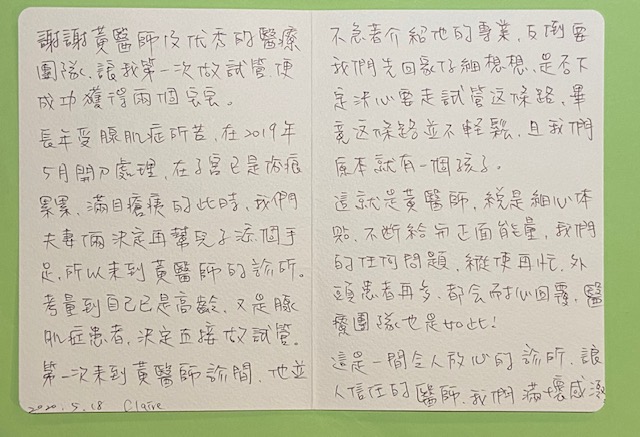 謝謝黃醫師及優秀的醫療
團隊、讓我第一次做試管便
成功獲得兩個寶寶。
長年受腺肌症所苦,在2019年
5月開刀處理,在子宮已是傷痕
累累、滿目瘡痍的此時,我們
夫妻倆決定再幫兒子添個手
足,所以來到黃醫師的診所。
考量到自己已是高齡、又是腺
肌症患者,決定直接做試管。
第一次來到黃醫師診間、他並
2020.5.18 Claire
不急著介紹他的專業,反倒要
我們先回家仔細想想、是否下
定決心要走試管這條路,畢
竟這條路並不輕鬆,且我們
原本就有一個孩子。
這就是黃醫師,總是細心体
貼、不斷給匀正面能量,我們
的任何問題、縱使再忙、外
頭患者再多、都会耐心回覆,醫
療團隊也是如此!
這是一間令人放心的診所、讓
人信任的醫師、我們滿懷感激